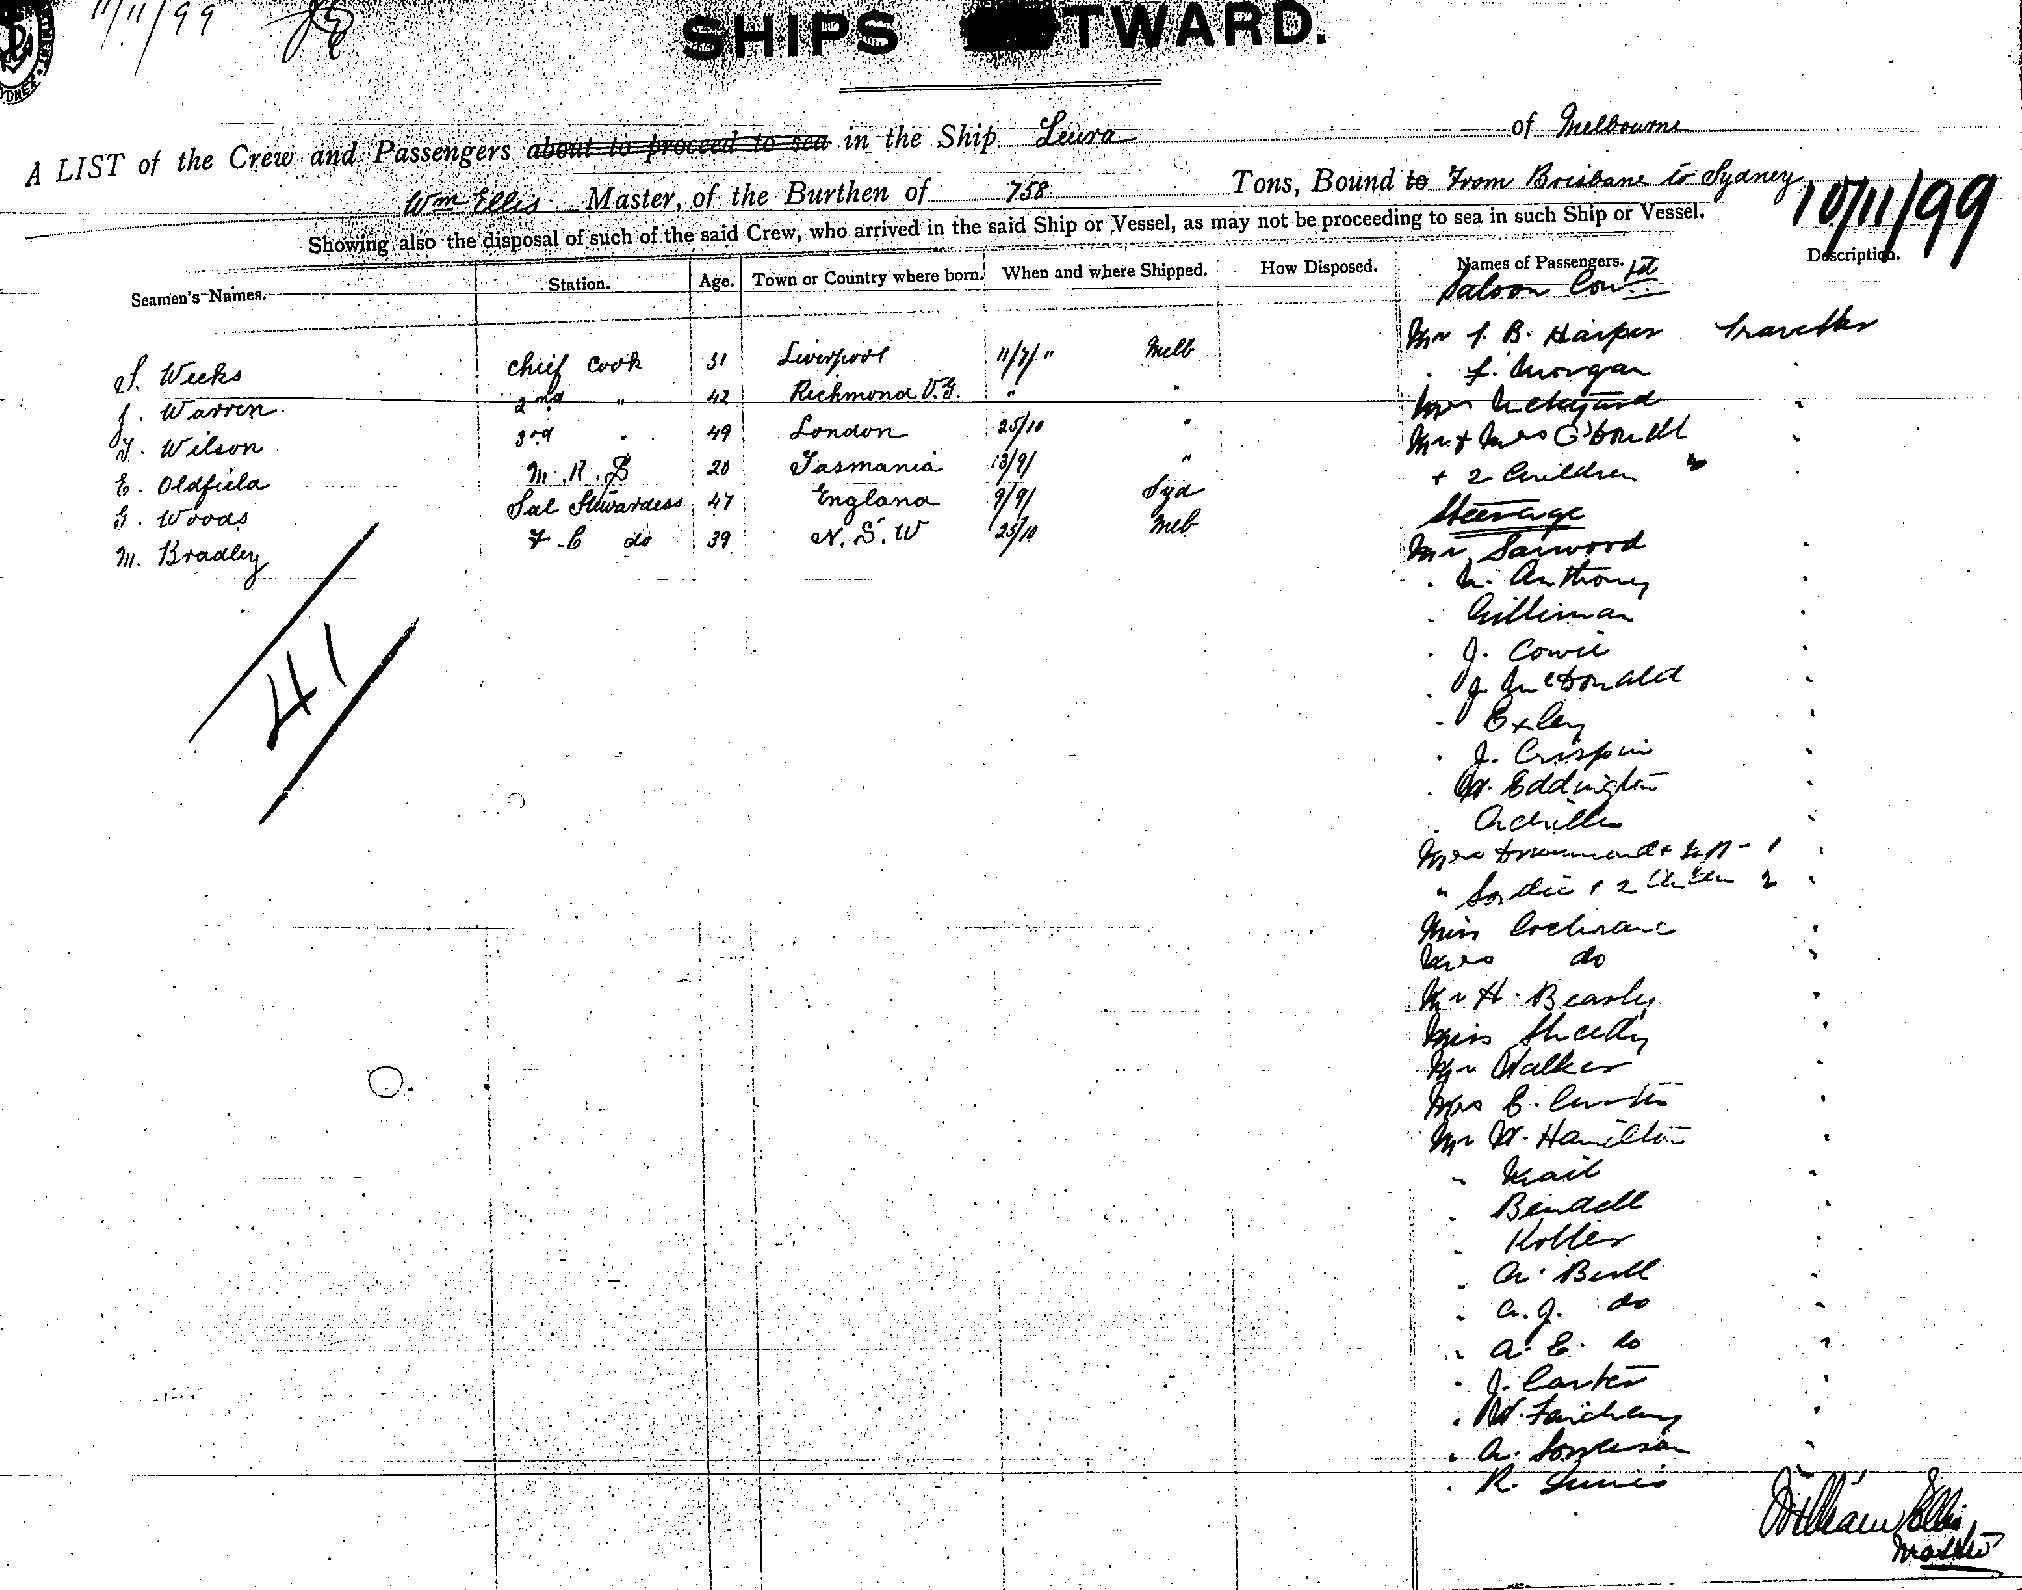 11/11/99
SHIPS TWARD.
A LIST of the Crew and Passengers about to proceed to sea in the Ship Leura of Melbourne
Wm Ellis Master, of the Burthen of 758 Tons, Bound to From Brisbane to Sydney
10/11/99
Showing also the disposal of such of the said Crew, who arrived in the said Ship or Vessel, as may not be proceeding to sea in such Ship or Vessel.
Seamen's Names. Station. Age. Town or Country where born. When and where Shipped. How Disposed. Names of Passengers. Description.
Saloon
S. Weeks chief cook 51 Liverpool 11/7/" Melb
J. Warren 2nd " 42 Richmond V.G. " "
T. Wilson 3rd " 49 London 25/10 "
E. Oldfield M.R. 20 Tasmania 13/9/ "
G. Woods Sal Stewardess 47 England 9/9/ Syd
M. Bradley F.C do 39 N.S.W 25/10 Melb
41
Mr B. Harper Traveller
" Morgan
Mrs
Mr & Mrs
+ 2 Children
Steerage
Mr
" Anthony
" Gilliman
" J. Cowie
" J. McDonald
" Exley
" J. Crispin
" W. Eddington
" Achilles
Mrs Drummond + 1
" + 2 Children 2
Miss Cochrane
Mrs do
Mr H. Beasley
Miss Sheedy
Mr Walker
Mrs E. Curtis
Mr W. Hamilton
"
" Bendell
"
" A. Bell
" A.J. do
" A.E. do
" J. Carter
" W.
" A.
" R.
William Ellis
Master